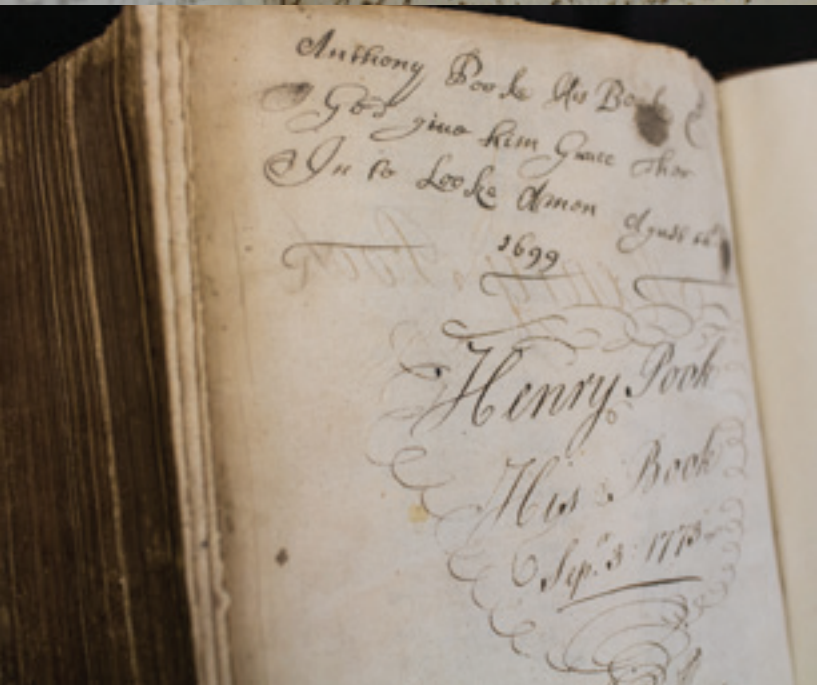 Anthony Pooke His Book
God give him Grace ther
In to Looke Amen
1699
Henry Pook
His Book
Sepr. 3 1773